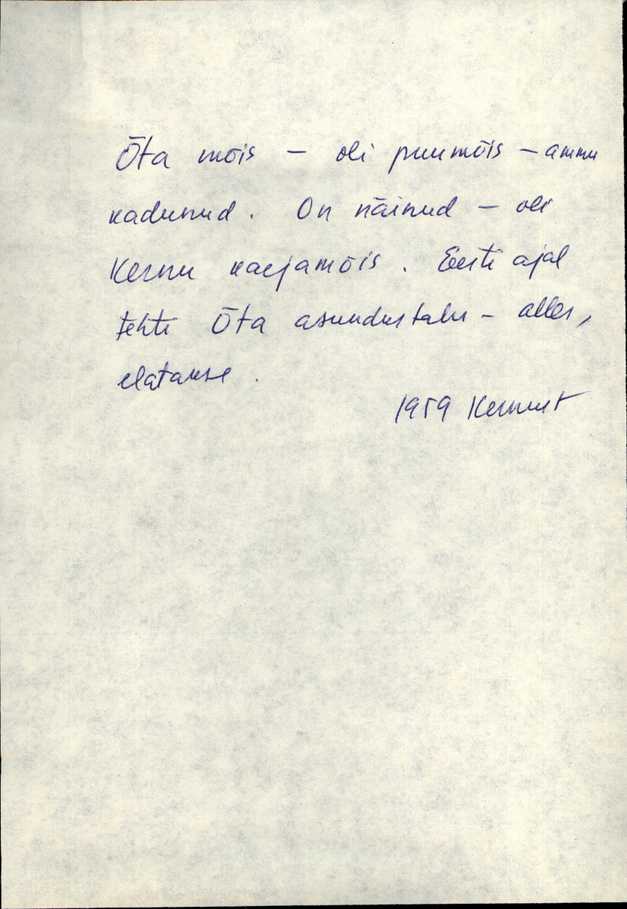 Õta mõis – oli puumõis – ammu
kadunud. On näinud – oli
Kernu karjamõis. Eesti ajal
tehti Õta asundustalu – alles,
elatakse.
1959 Kernust